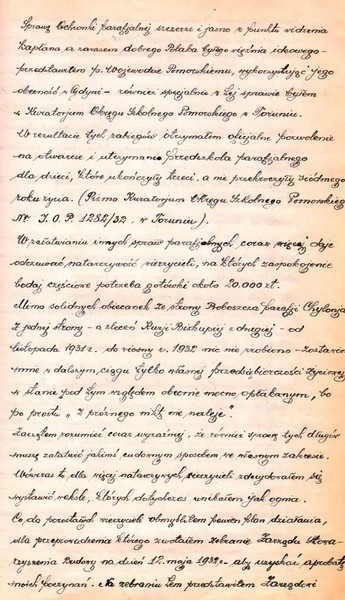 Sprawę Ochronki parafjalnej szczerze i jasno z punktu widzenia
Kapłana a zarazem dobrego Polaka byłego więźnia ideowego -
przedstawiłem p. Wojewodzie Pomorskiemu, wykorzystując Jego
obecność w Gdyni - również specjalnie w tej sprawie byłem
w Kuratorjum Okręgu Szkolnego Pomorskiego w Toruniu.
W rezultacie tych zabiegów otrzymałem oficjalne pozwolenie
na otwarcie i utrzymanie przedszkola parafjalnego
dla dzieci, które ukończyły trzeci, a nie przekroczyły siódmego
roku życia. (Pismo Kuratorjum Okręgu Szkolnego Pomorskiego
Nr. I.O.P. 1252/32, w Toruniu).
W załatwianiu innych spraw parafjalnych coraz więcej daje
odczuwać natarczywość wierzycieli, na których zaspokojenie
bodaj częściowe potrzeba gotówki około 20.000 zł.
Mimo solidnych obiecanek ze strony Proboszcza parafji Chylonja
z jednej strony - a zleceń Kurji Biskupiej z drugiej - od
listopada 1931 r. do wiosny r. 1932 nic nie zrobiono -
mnie w dalszym ciągu tylko własnej przedsiębiorczości życiowej
w stanie pod tym względem obecnie mocno opłakanym, bo
po prostu „z próżnego nikt nie naleje".
Zacząłem rozumieć coraz wyraźniej, że również sprawę tych długów
muszę załatwić jakimś cudownym sposobem we własnym zakresie.
Wówczas to dla więcej natarczywych wierzycieli zdecydowałem się
wystawić weksle, których dotychczas unikałem jak ognia.
Co do pozostałych wierzycieli obmyśliłem pewien plan działania,
dla przeprowadzenia którego zwołałem zebranie Zarządu Stowa-
rzyszenia Budowy na dzień 12. maja 1932 r. aby uzyskać aprobatę
moich poczynań. Na zebraniu tem przedstawiłem Zarządowi